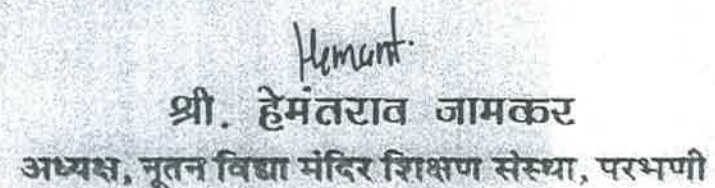 Hemant.
श्री. हेमंतराव जामकर
अध्यक्ष, नूतन विद्या मंदिर शिक्षण संस्था, परभणी